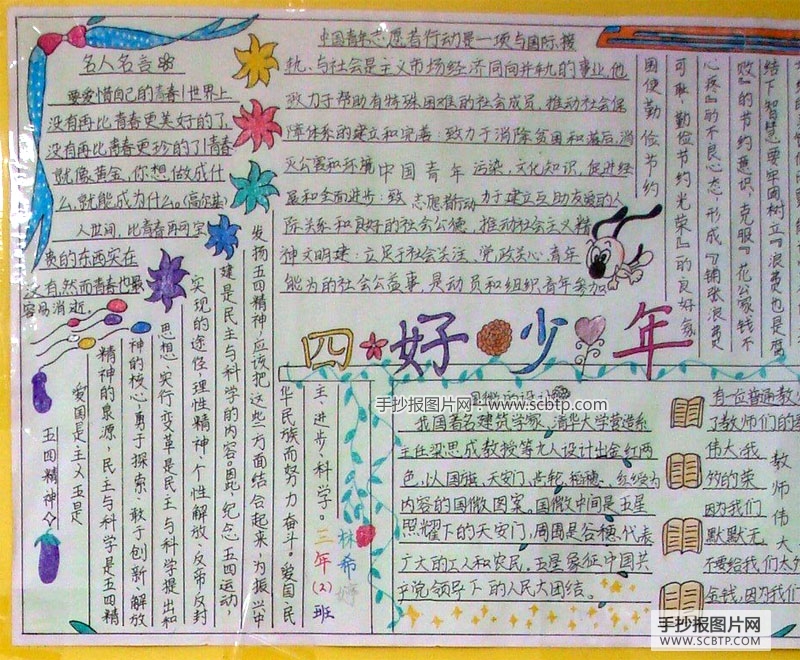 名人名言
要爱惜自己的青春!世界上
没有再比青春更美好的了,
没有再比青春更珍的了!青春
就像黄金,你想做成什
么,就能成为什么。(高尔基)
人世间,比青春再可宝
贵的东西实在
没有,然而青春也最
容易消逝。
中国青年志愿者行动是一项与国际接
轨、与社会是主义市场经济同向并轨的事业,他
致力于帮助有特殊困难的社会成员,推动社会保
障体系的建立和完善:致力于消除贫困和落后,消
灭公害和环境 污染,文化知识,促进经
中国青年
志愿者行动
力于建立互助友爱的人
际关系和良好的社会公德,推动社会主义精
神文明建:立足于社会关注、党政关心青年
能为的社会公益事,是动员和组织青年参加
结下智慧要牢固树立『浪费也是腐
败』的节约意识,克服『花公家钱不
心疼』的不良心态,形成『铺张浪费
可耻,勤俭节约光荣』的良好家
国使勤俭节约
四好少年
五四精神
爱国是主义五是
精神的泉源,民主与科学是五四精
神的核心,勇于探索、敢于创新、解放
思想、实行变革是民主与科学提出和
实现的途径,理性精神、个性解放、反帝反封
建是民主与科学的内容。因此,纪念五四运动,
发扬五四精神,应该把这些方面结合起来,为振兴中
华民族而努力奋斗。爱国、民
主、进步、科学。
三年(2)班
林希婷
国徽的设计
手抄报图片网:www.scbtp.com
我国著名建筑学家、清华大学营造系
主任梁思成教授等九人设计出金红两
色,以国旗、天安门、齿轮、稻穗、红绶为
内容的国徽图案。国徽中间是五星
照耀下的天安门,周围是谷穗,代表
广大的工人和农民。五星象征中国共
产党领导下的人民大团结。
有一位普通教
了教师们的
伟大,我
妙的荣
因为我们
默默无
不要给我们太
金钱,因为我们
教师伟大
手抄报图片网
WWW.SCBTP.COM